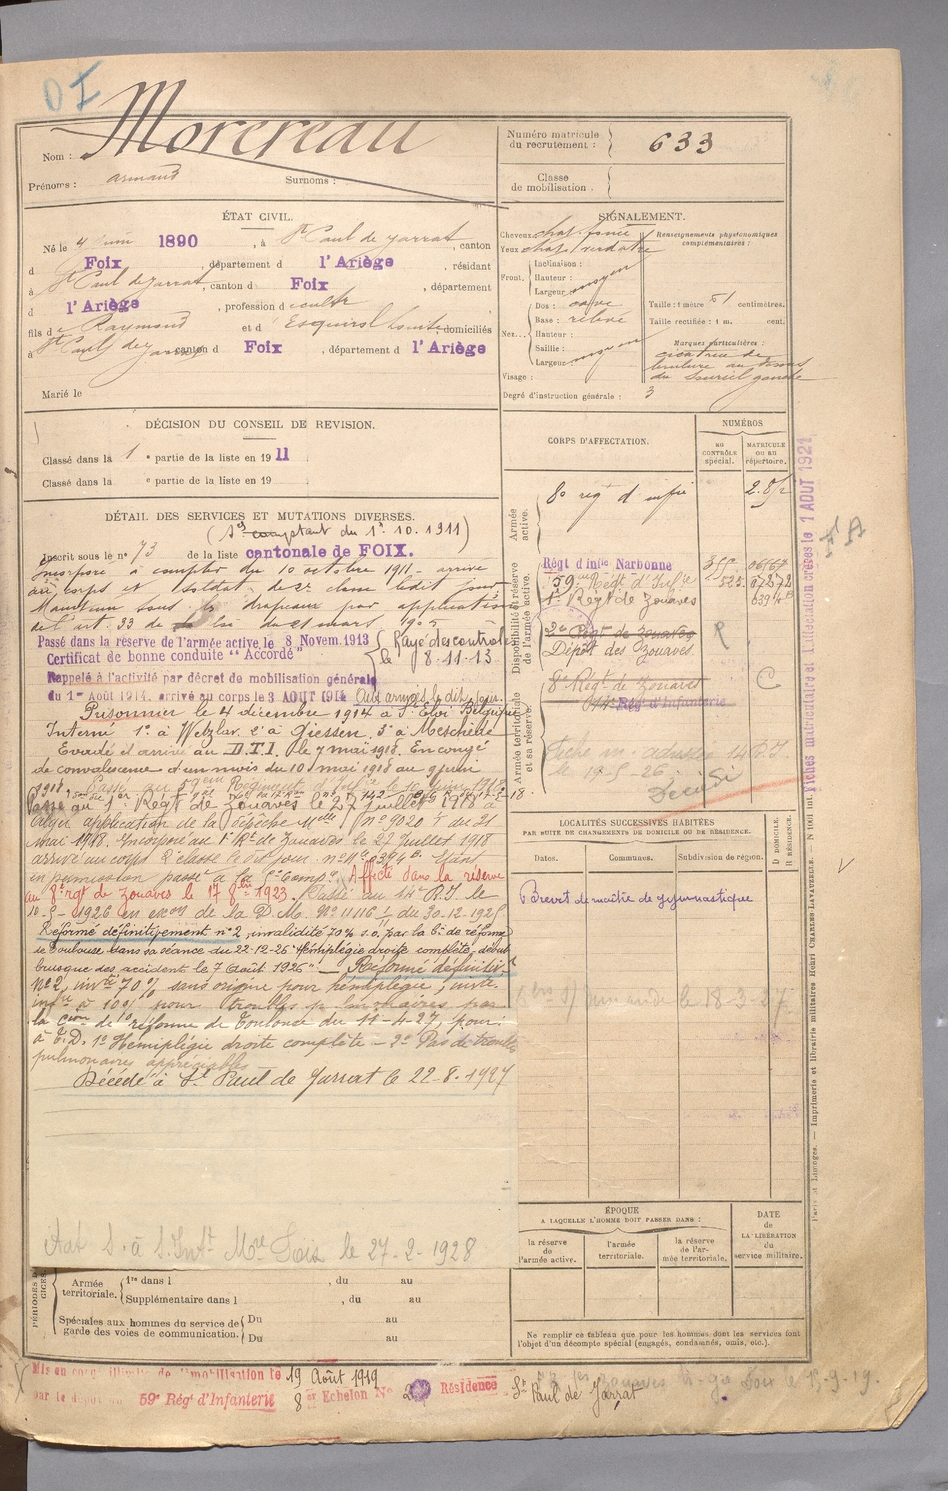 OI
Nom : Morereau
Prénoms : armand Surnoms :
Numéro matricule du recrutement : 633
Classe de mobilisation :
ÉTAT CIVIL.
Né le 4 juin 1890, à St Paul de Jarrat, canton
d Foix, département d l'Ariège, résidant
à St Paul de Jarrat, canton d Foix, département
d l'Ariège, profession d
fils de Raymond et d Esquirol domiciliés
à St Paul de Jarrat canton d Foix, département d l'Ariège
Marié le
SIGNALEMENT.
Cheveux chat. foncé
Yeux chat. verdâtre
Front. Inclinaison :
Hauteur :
Largeur :
Nez. Dos : cave
Base : relevé
Hauteur :
Saillie :
Largeur :
Visage :
Renseignements physionomiques complémentaires :
Taille : 1 mètre 61 centimètres.
Taille rectifiée : 1 m. cent.
Marques particulières :
cicatrice de
brulure au dessus
du sourcil gauche
Degré d'instruction générale : 3
DÉCISION DU CONSEIL DE REVISION.
Classé dans la 1 e partie de la liste en 1911
Classé dans la e partie de la liste en 19
DÉTAIL DES SERVICES ET MUTATIONS DIVERSES.
comptant du 1er. 10. 1911)
Inscrit sous le n° 73 de la liste cantonale de FOIX.
Incorporé à compter du 10 octobre 1911 - arrivé
au corps et soldat de 2e classe ledit jour
Maintenu sous les drapeaux par application
de l'art. 33 de la loi du 21 mars 1905
Passé dans la réserve de l'armée active, le 8 Novem. 1913
Certificat de bonne conduite "Accordé"
Rayé des contrôles
le 8.11.13
Rappelé à l'activité par décret de mobilisation générale
du 1er Août 1914. arrivé au corps le 3 AOUT 1914 Aux armées le dit jour.
Prisonnier le 4 décembre 1914 à St Eloi Belgique
Interné 1° à Wetzlar 2° à Giessen, 3° à Meschède
Evadé et arrivé au D.T.I. le 7 mai 1918. En congé
de convalescence d'un mois du 10 mai 1918 au 9 juin
1918. Passé au
Passé au 1er Régt de Zouaves le 27 juillet 1918 à
Alger application de la dépêche Mlle n° 9020 du 21
mai 1918. Incorporé au 1er Rt de Zouaves le 27 juillet 1918
arrivé au corps 2e classe le dit jour
en permission passé à la Affecté dans la réserve
au 8e rgt de Zouaves le 17 8bre 1923. Passé au 14e R.I. le
10-5-1926 en exon de la D.M. N° 11116 1/11 du 30-12-1925
Réformé définitivement n° 2, invalidité 70% s.o. par la Con de réforme
de Toulouse dans sa séance du 22-12-26 "Hémiplégie droite complète, début
brusque des accident le 7 Août 1926" — Réformé définitivt
N° 2, invté 70% sans origine pour hémiplégie, invté
infre à 10% pour troubles pulmonaires par
la Con de réforme de Toulouse du 11-4-27, pour :
à T.D. 1° Hémiplégie droite complète - 2° Pas de troubles
pulmonaires appréciables
Décédé à St Paul de Jarrat le 22-8-1927
le 27-2-1928
CORPS D'AFFECTATION.
NUMÉROS
au contrôle spécial.
matricule ou au répertoire.
Armée active.
8e régt d'infie 2.812
Disponibilité et réserve de l'armée active.
Régt d'infie Narbonne
59e Régt d'Infie
1er Régt de Zouaves
2e Régt de Zouaves
Dépôt des Zouaves
R
Armée territoriale et sa réserve.
8e Régt de Zouaves
Régt d'Infanterie
C
Fiche m. adressée 14 R.I.
le 19-5-26
Décédé
LOCALITÉS SUCCESSIVES HABITÉES
PAR SUITE DE CHANGEMENTS DE DOMICILE OU DE RÉSIDENCE.
Dates. Communes. Subdivision de région. D DOMICILE. R RÉSIDENCE.
Brevet de maître de gymnastique
le 18-3-27
ÉPOQUE
A LAQUELLE L'HOMME DOIT PASSER DANS :
la réserve de l'armée active.
l'armée territoriale.
la réserve de l'armée territoriale.
DATE de LA LIBÉRATION du service militaire.
Ne remplir ce tableau que pour les hommes dont les services font
l'objet d'un décompte spécial (engagés, condamnés, omis, etc.).
Armée territoriale. 1re dans l , du au
Supplémentaire dans l , du au
Spéciales aux hommes du service de garde des voies de communication. Du au
Du au
Mis en congé illimité de démobilisation le 19 Août 1919
par le dépôt du 59e Régt d'Infanterie 8 er Echelon No 2 Résidence St Paul de Jarrat
Fiches matriculaire et d'affectation créées le 1 AOUT 1921
Paris et Limoges. — Imprimerie et librairie militaires Henri CHARLES-LAVAUZELLE. — N° 1061 int.